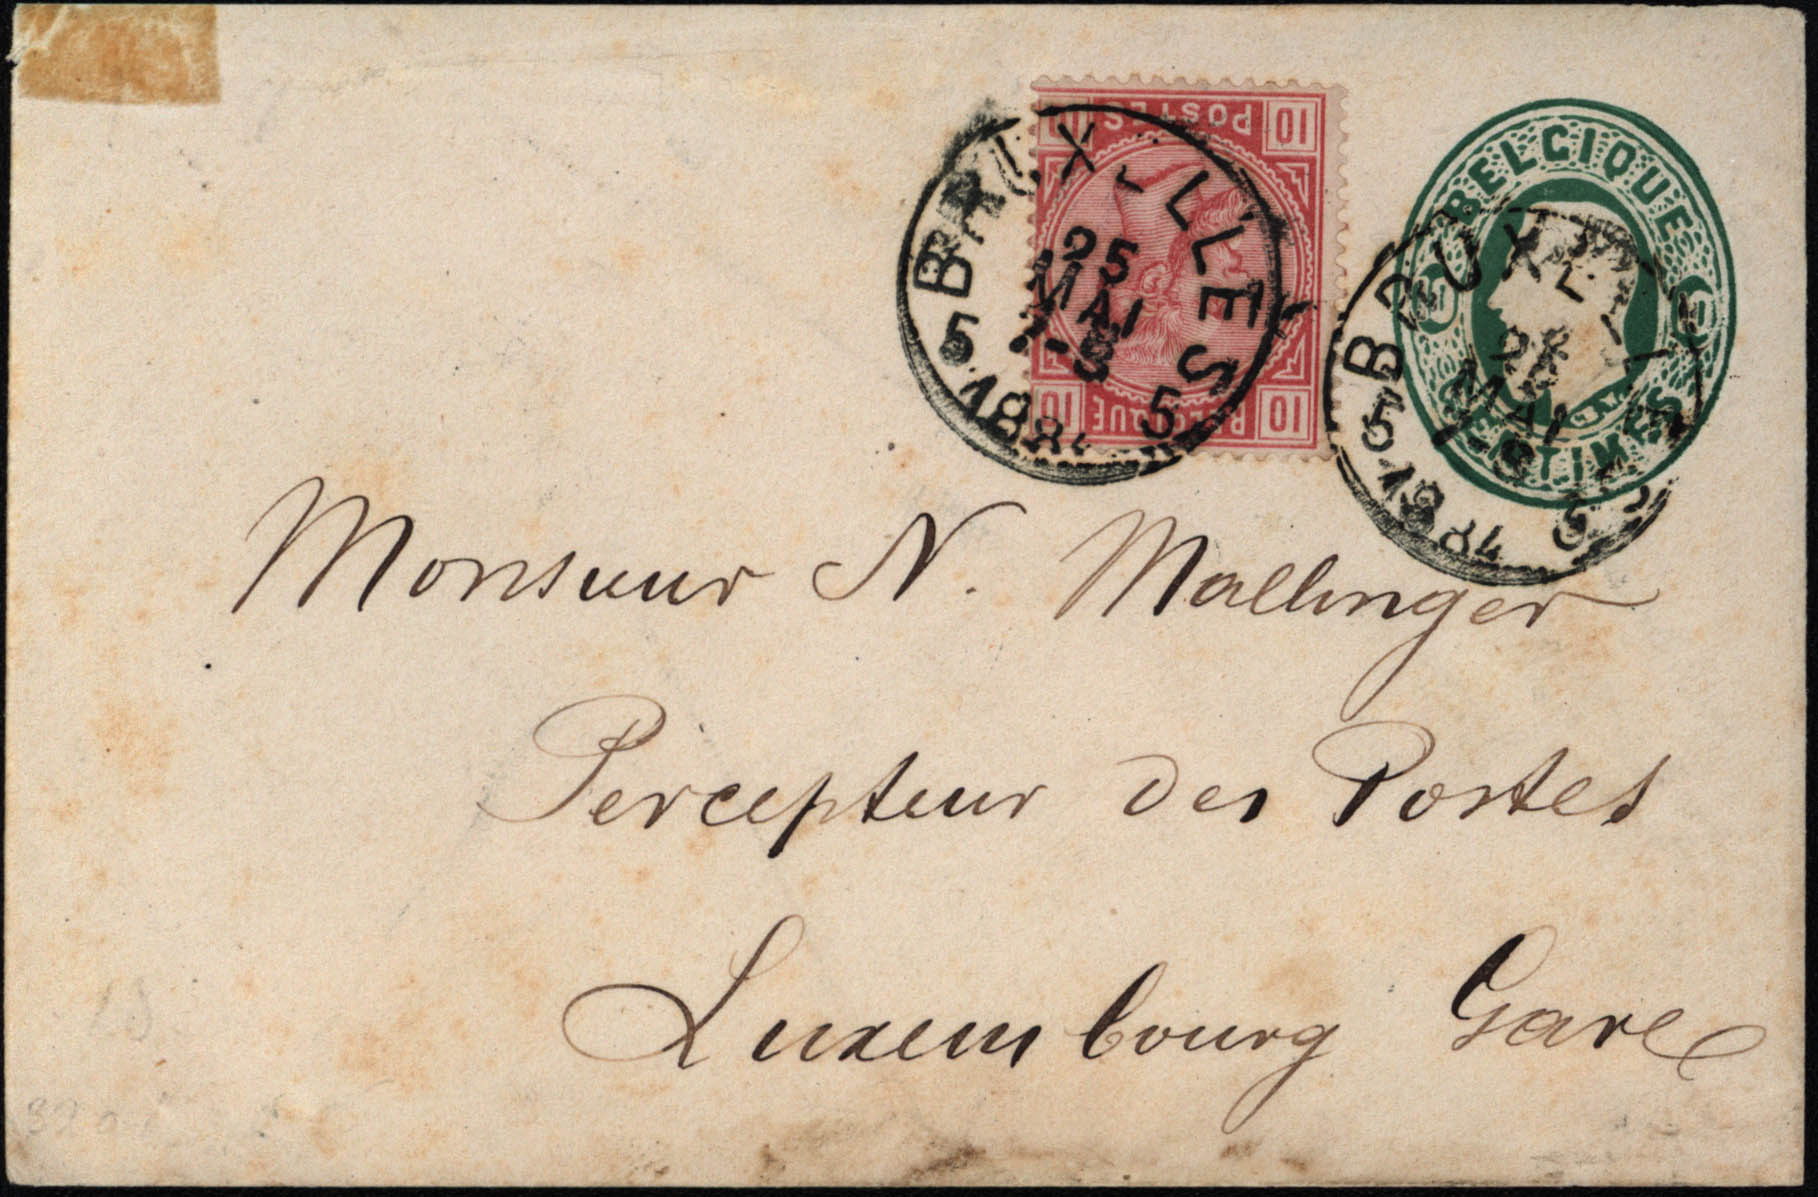 10 POSTES 10
10 BELGIQUE 10
BRUXELLES
25
MAI
7-8
5 1884 5
BELGIQUE
5 5
CENTIMES
BRUXELLES
25
MAI
7-8
5 1884 5
Monsieur N. Mallinger
Percepteur des Postes
Luxembourg Gare